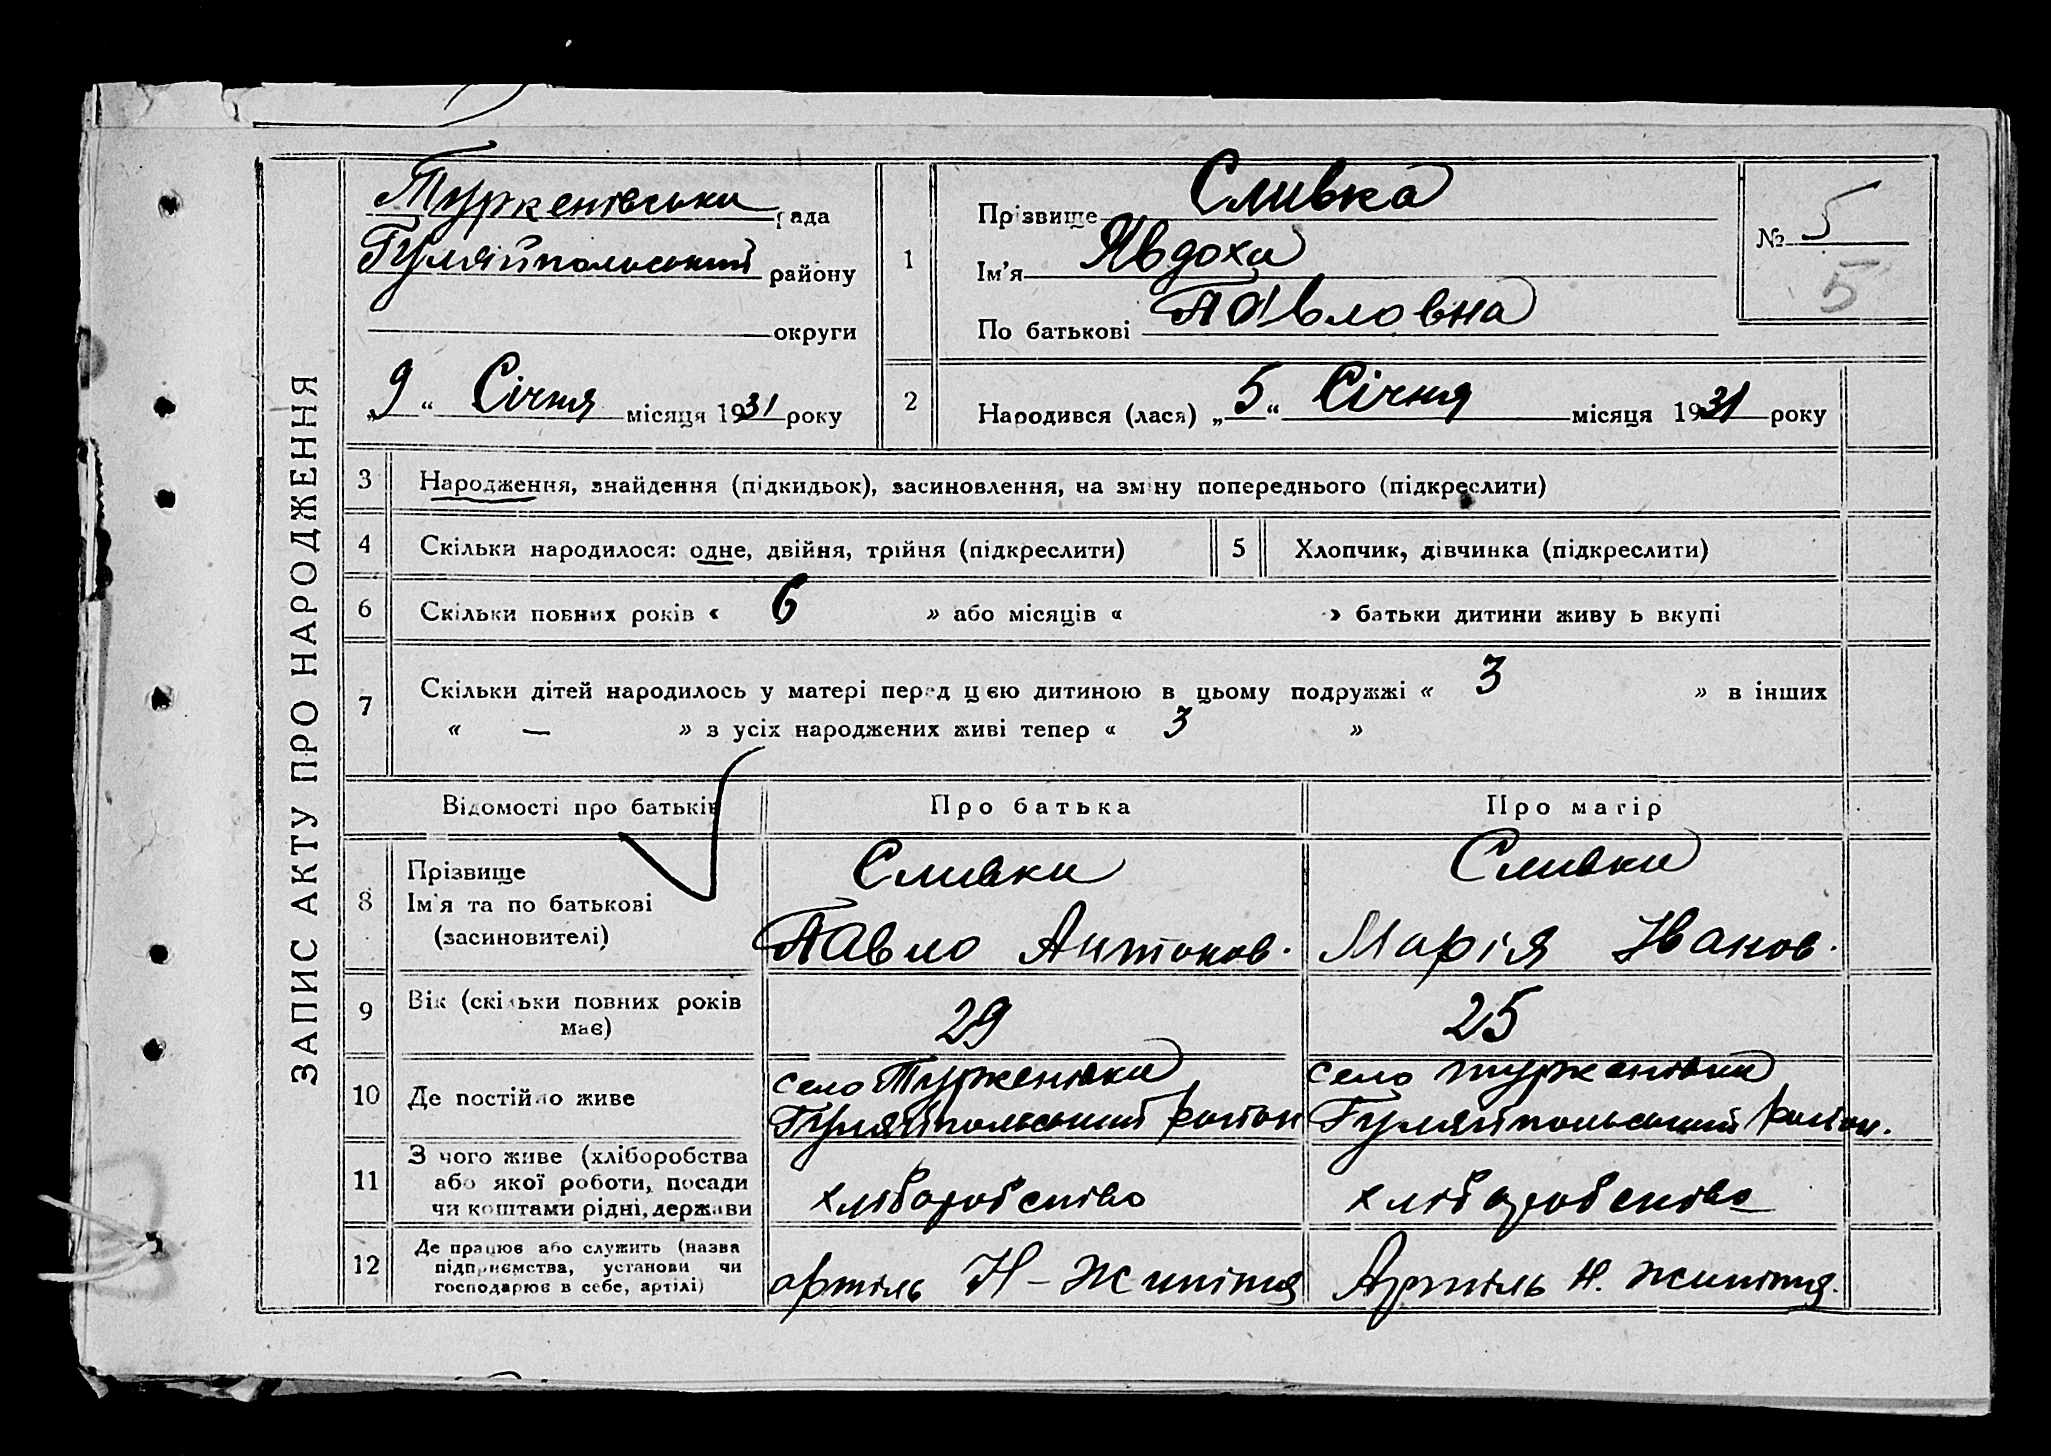 ЗАПИС АКТУ ПРО НАРОДЖЕННЯ
Туркенівська рада
Гуляйпольський району
округи
„9“ Січня місяця 1931 року
1
Прізвище Сливка
Ім'я Явдоха
По батькові Павловна
№ 5
5
2
Народився (лася) „5“ Січня місяця 1931 року
3 Народження, знайдення (підкидьок), засиновлення, на зміну попереднього (підкреслити)
4 Скільки народилося: одне, двійня, трійня (підкреслити)
5 Хлопчик, дівчинка (підкреслити)
6 Скільки повних років « 6 » або місяців « » батьки дитини живу ь вкупі
7 Скільки дітей народилось у матері перед цією дитиною в цьому подружжі « 3 » в інших
« — » з усіх народжених живі тепер « 3 »
Відомості про батьків Про батька Про матір
8 Прізвище
Ім'я та по батькові
(засиновителі)
Сливка
Павло Антонов.
Сливка
Марія Іванов.
9 Вік (скільки повних років
має)
29
25
10 Де постійно живе
село Турженівка
Гуляйпольський район
село Турженівка
Гуляйпольський район.
11 З чого живе (хліборобства
або якої роботи, посади
чи коштами рідні, держави
хліборобство
хліборобство
12 Де працює або служить (назва
підприємства, установи чи
господарює в себе, артілі)
артіль Н-Життя
Артіль Н. Життя.